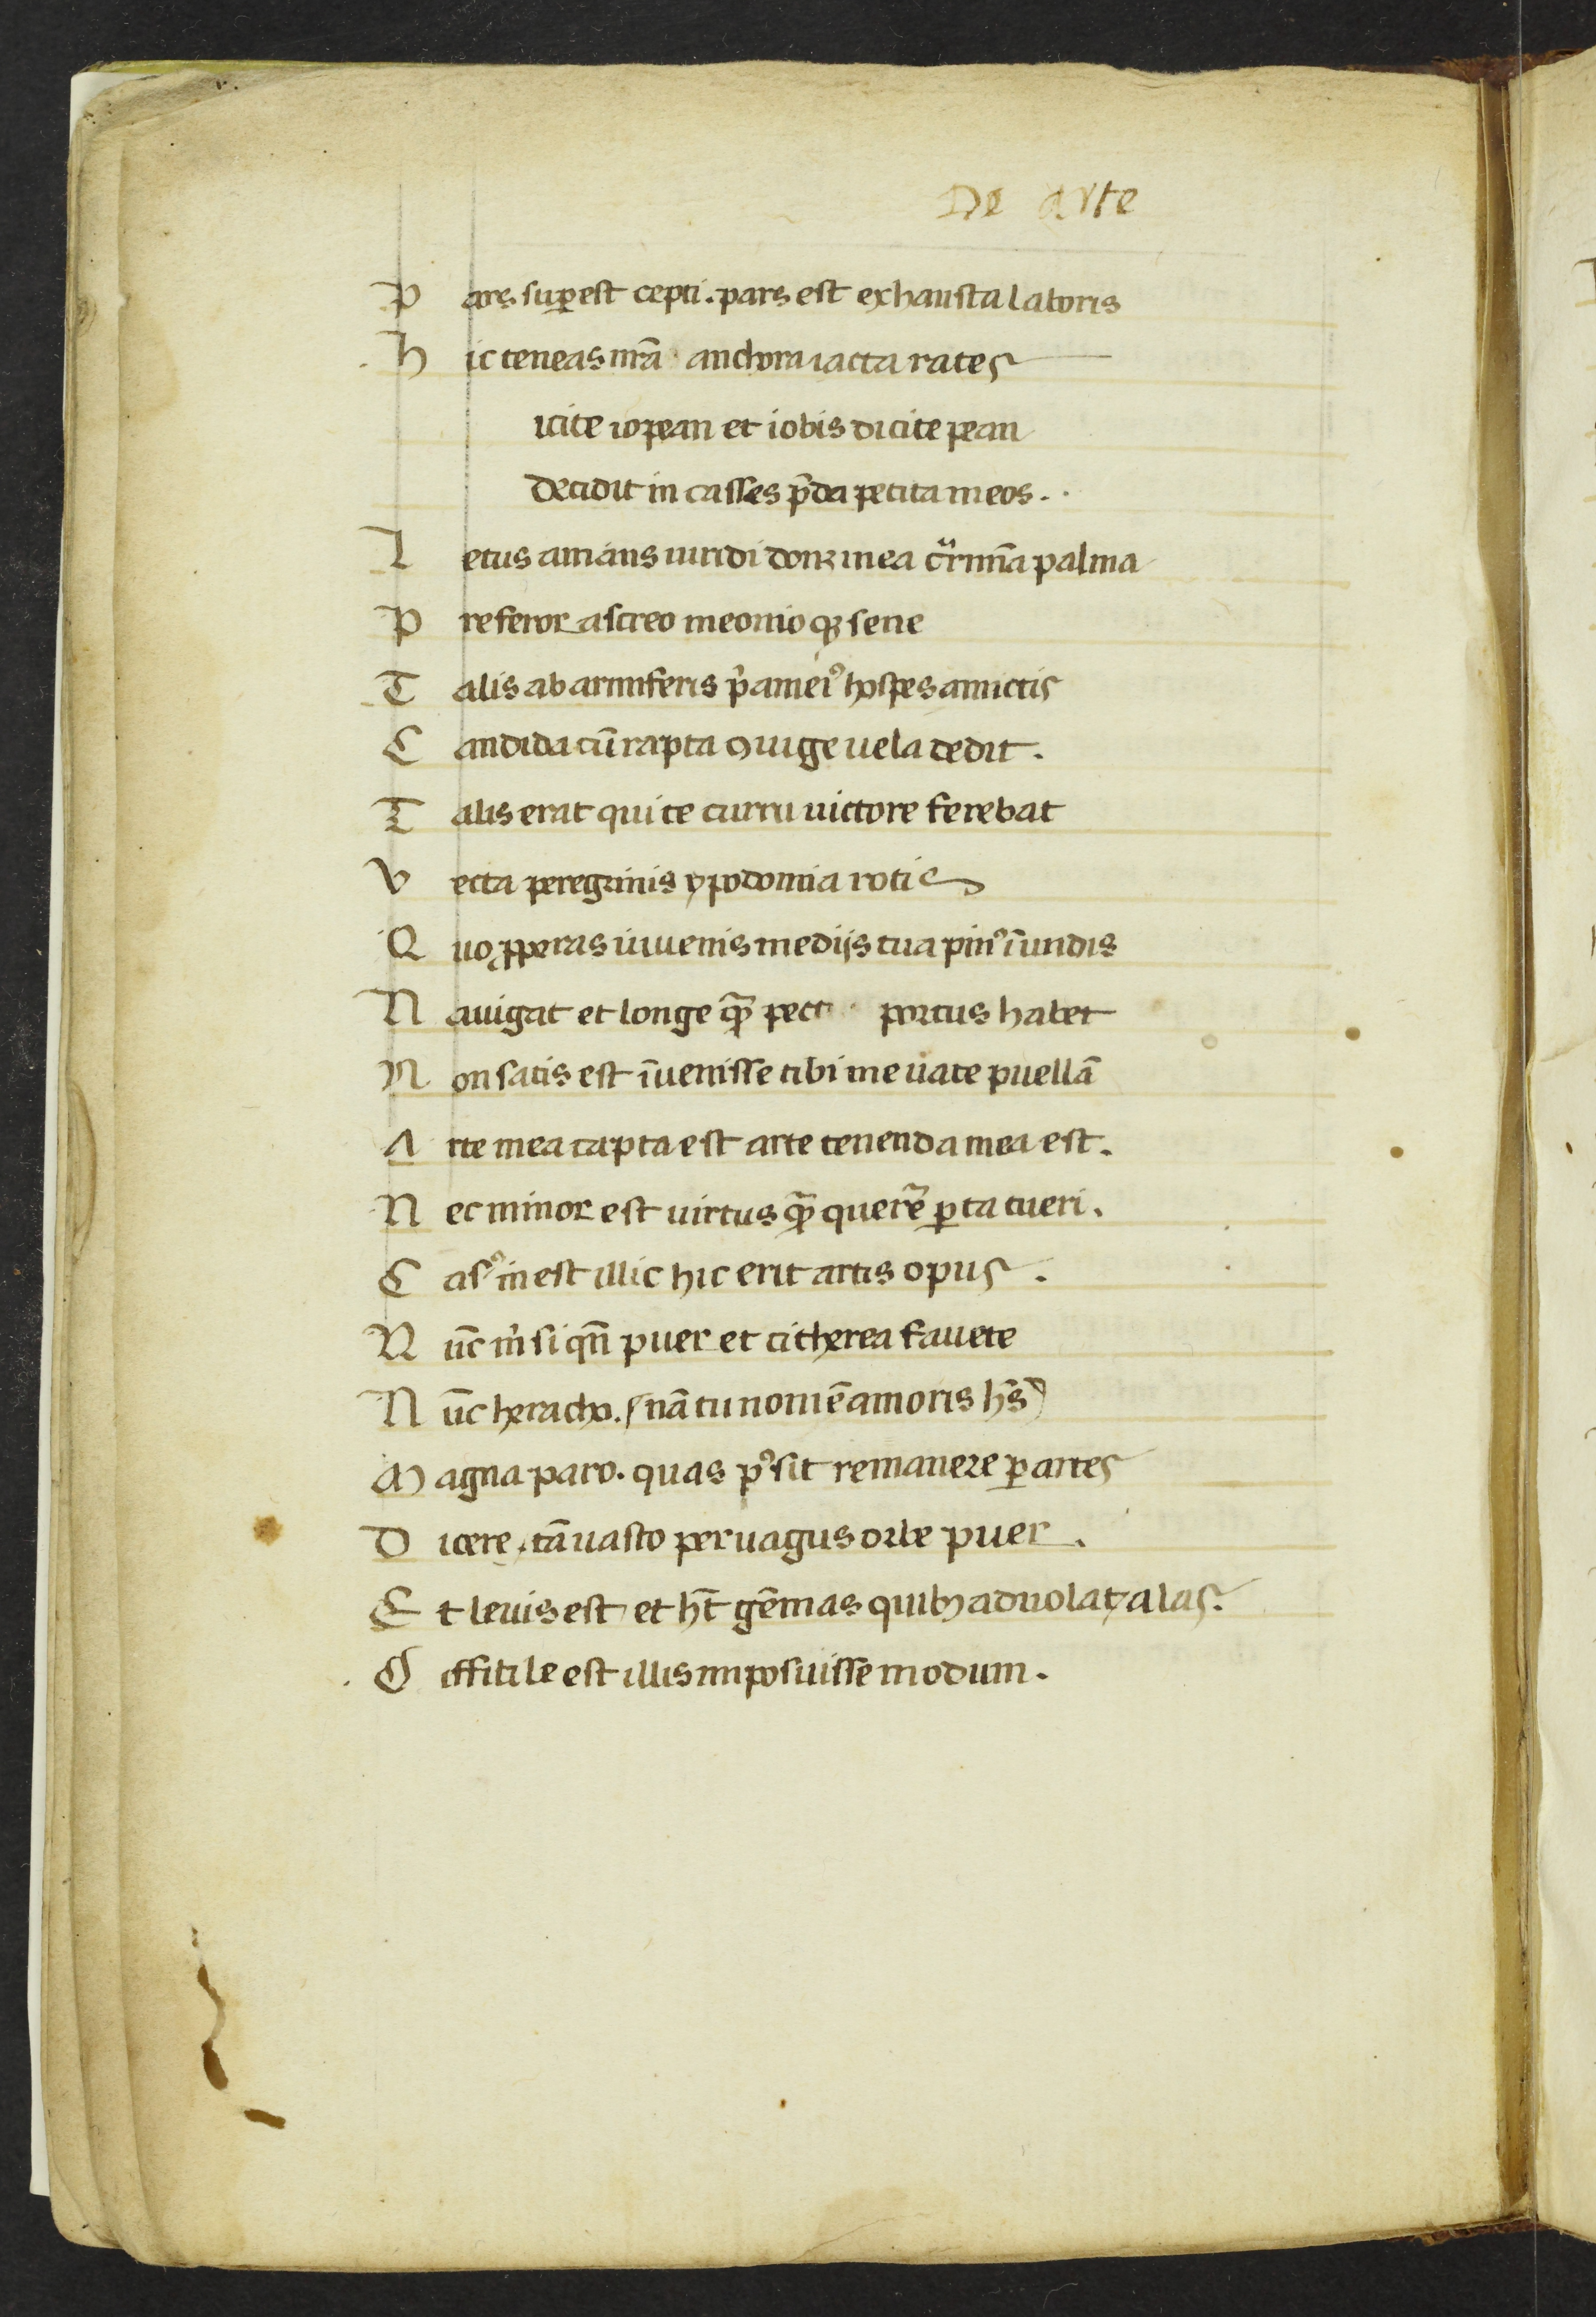 De arte
P ars sup̲est cepti. pars est exhausta laboris
H ic teneas nr̃a anchora iacta rates
icite iopean et iobis dicite pean
Decidit in casses p̃da petita meos..
L etus amans uiridi donꝫ mea cͣrmĩa palma
P referor ascreo meonioqꝫ sene
T alis ab armiferis pͥameiꝰ hospes amictis
C andida cũ rapta ꝯiuge uela dedit.
T alis erat qui te curru uictore ferebat
V ecta peregrinis ypodomia rotis
Q uo ꝓperas iuuenis medijs tua pinꝰ ĩ undis
N auigat et longe qͣ̃ pet portus habet
N on satis est ĩuenisse tibi me uate puellã
A rte mea capta est arte tenenda mea est.
N ec minor est uirtus qͣ̃ querẽ ꝑta tueri.
C asꝰ inest illic hic erit artis opus.
N ũc mͥ si qñ puer et citherea fauete
N ũc heracho. (nã tu nomẽ amoris hẽs)
M agna paro. quas pꝰsit remanere ꝑ artes
D icere, tã uasto peruagus orbe puer.
E t leuis est et hꝫt gẽmas quibꝫ aduolat, alas.
D ifficile est illis imposuisse modum.